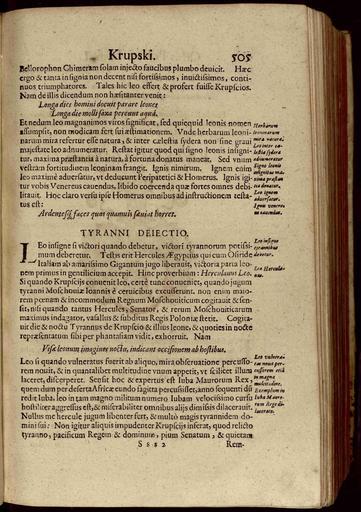 Krupski. 505
Bellorophon Chimeram solam injecto faucibus plumbo devicit. Hæc
ergo & tanta insignia non decent nisi fortissimos, invictissimos, conti-
nuos triumphatores. Tales hic leo effert & profert fuisse Krupscios.
Nam de illis dicendum non hæsitanter venit:
Longa dies homini docuit parare leones
Longa die molli saxa pereunt aquâ.
Et nedum leo magnanimos viros significat, sed quiequid leonis nomen
assumpsit, non modicam fert sui æstimationem. Unde herbarum leoni-
narum mira refertur esse natura, & inter cælestia sydera non sine graui
majestate leo adnumeratur. Restat igitur quod qui signo leonis insigni-
tur, maxima præstantia à natura, à fortuna donatus maneat. Sed vnum
vestram fortitudinem leoninam frangit. Ignis nimirum, Ignem enim
leo maximè aduersatur, vt deducunt Peripatetici & Homerus. Ignis igi-
tur vobis Venereus cauendus, libido coercenda quæ fortes omnes debi-
litauit. Hoc claro versu ipse Homerus omnibus ad instructionem testa-
tus est:
Ardentesq́; faces quas quamuis sæuiat horret.
Herbarum
leoninarum
mira natura.
Leo inter cæ-
lestia sydera
adnumeratur
Signo leonis
insignitus ma-
xima præstan-
tia donatur.
Leo ignem
aduersatur.
Ignis venereus
cauendus.
TYRANNI DEIECTIO.
LEo insigne si victori quando debetur, victori tyrannorum potissi-
mum deberetur. Testis erit Hercules Ægyptius qui cum Osiride
Italiam ab amarissimo Gigantum jugo liberauit, victoria parta leo-
nem primus in gentilicium accepit. Hinc prouerbium: Herculeanus Leo.
Si quando Krupscijs conuenit leo, certè tunc conuenit, quando jugum
tyranni Moschouiæ Ioannis è ceruicibus excusserunt, non enim maio-
rem pernam & incommodum Regnum Moschouiticum cogitauit & sen-
sit, nisi quando tantus Hercules, Senator, & rerum Moschouiticarum
maximus indagator, vasallus & subditus Regis Poloniæ stetit. Cogita-
uit die & noctu Tyrannus de Krupscio & illius leone, & quoties in nocte
repræsentatum sibi per phantasiam vidit, exhorruit. Nam
Visa leonum imagine noctu, indicant occasionem ab hostibus.
Leo insigne
tyrannibus
debetur.
Leo Hercula-
nus.
Leo si quando vulneratus fuerit ab aliquo, mira obseruatione percusso-
rem nouit, & in quantalibet multitudine vnum appetit, vt scilicet illum
laceret, discerperet. Sensit hoc & expertus est Iuba Maurorum Rex,
quem dum per deserta Africæ eundo sagitta percussisset, anno sequenti dũ
redit Iuba, leo in tam magno militum numero Iubam velocissimo cursu
hostiliter aggressus est, & miserabiliter omnibus alijs dimissis dilacerauit.
Nullus me hercule jugum libenter fert, & multò magis tyrannidem do-
mini sui: Non igitur aliquis impudenter Krupscijs inferat, quod relicto
tyranno, pacificum Regem & dominum, pium Senatum, & quietam
Leo vulnera-
tus nouit per-
cussorem etiã
in magna
multitudine.
Exemplum in
Iuba Mauro-
rum Rege di-
lacerato.
Ssss 2 Rem-